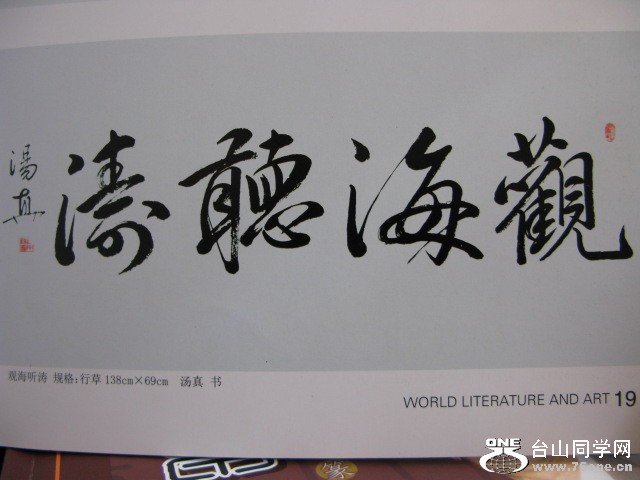 觀海聽濤
湯真
观海听涛 规格:行草 138cm×69cm 汤真 书
WORLD LITERATURE AND ART 19
ONE 台山同学网
www.76one.cn